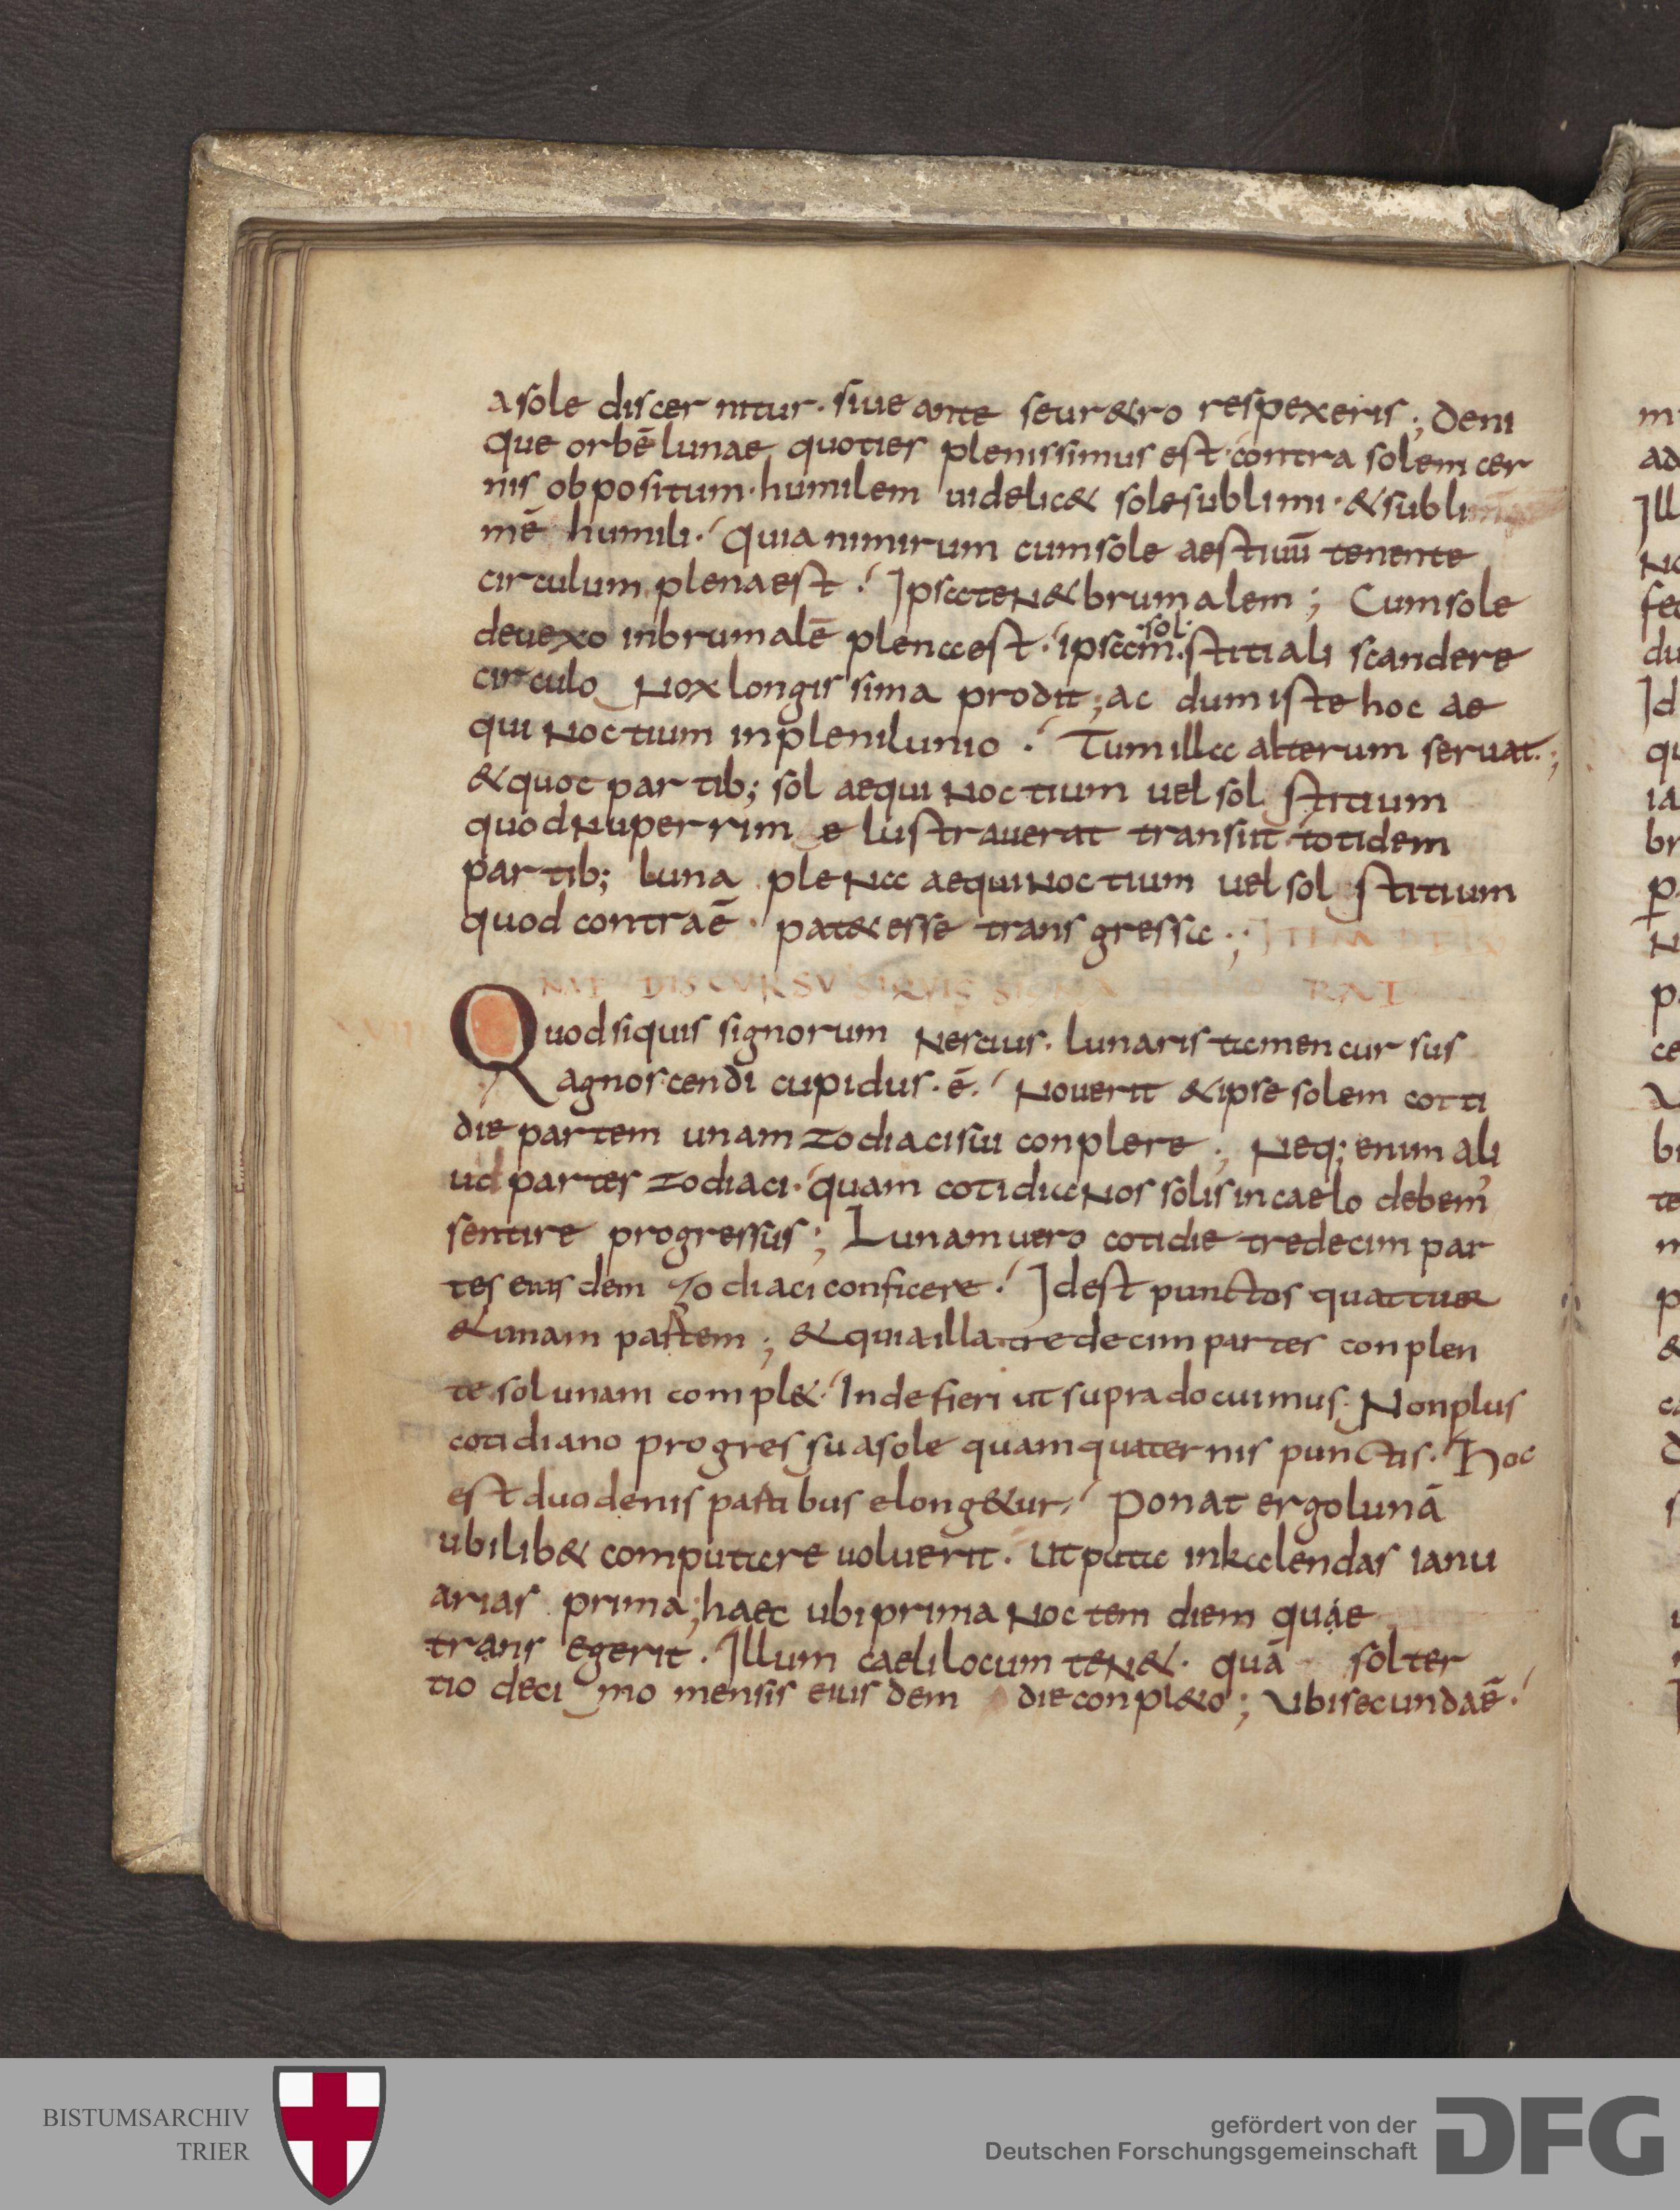 a sole discernitur · siue ante seu r&ro respexeris ; Deni
que orbē lunae quoties plenissimus est · contra solem cer
nis obpositum · humilem uidelic& sole sublimi · & subli
mē humili · quia nimirum cum sole aestiuū tenente
circulum plena est · Ipsa ten& brumalem ; Cum sole
deuexo in brumalē plena est · ipsam · sol · stitiali scandere
circulo Nox longissima prodit ; ac dum iste hoc ae
quinoctium in plenilunio · Tum illa alterum seruat · ;
& quot partib; sol aequinoctium uel sol stitium
quod nuperrim e lustrauerat transiit totidem
partib; luna plena aequinoctium uel sol stitium
quod contra ē · pat& esse transgressa · ; ITEM DE LV
NAE DISCVRSV SI QVIS SIGNA RAT
Quod si quis signorum nescius · lunaris tamen cursus
agnoscendi cupidus · ē · Nouerit & ipse solem cotti
die partem unam zodiaci sui conplere ; Neq; enim ali
ud partes zodiaci · quam cotidianos solis in caelo debem'
sentire progressus ; Lunam uero cotidie tredecim par
tes eiusdem zodiaci conficere · Id est punctos quattuor
& unam partem ; & quia illa tredecim partes conplen
te sol unam compl& · Inde fieri ut supra docuimus · Non plus
cotidiano progressu a sole quam quaternis punctis · hoc
est duodenis partibus elong&ur · Ponat ergo lunā
ubi lib& computare uoluerit · ut puta in kalendas ianu
arias prima ; haec ubi prima noctem diem quae
transegerit · Illum caeli locum ten& · quā sol ter
tio decimo mensis eiusdem die conpl&o ; Vbi secunda ē ·
m
ad
Ill
No
fec
du
Id
qu
ia
br
p
N
BISTUMSARCHIV
TRIER
gefördert von der
Deutschen Forschungsgemeinschaft
DFG